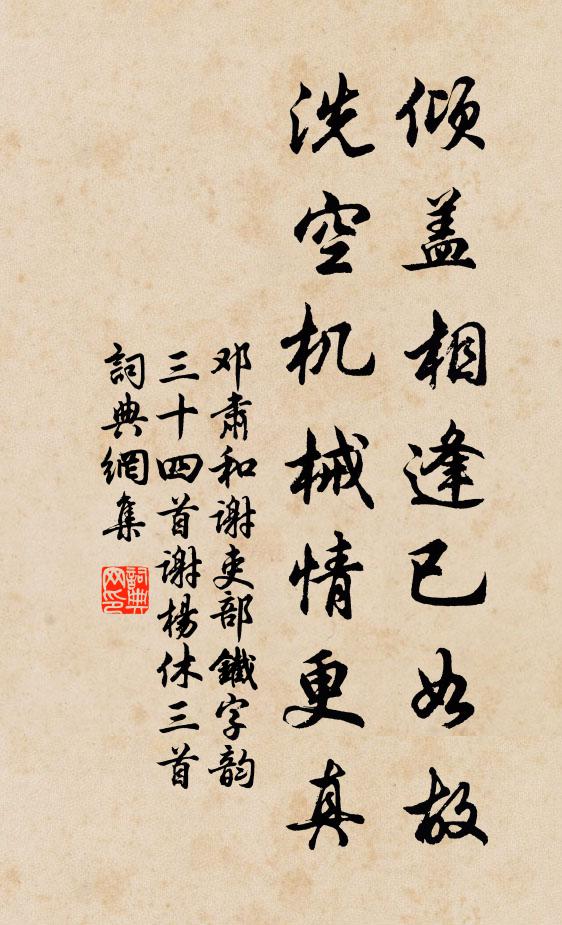 倾盖相逢已如故
洗空机械情更真
邓肃和谢吏部鐵字韵
三十四首谢楊休三首
詞典網集
詞典网印